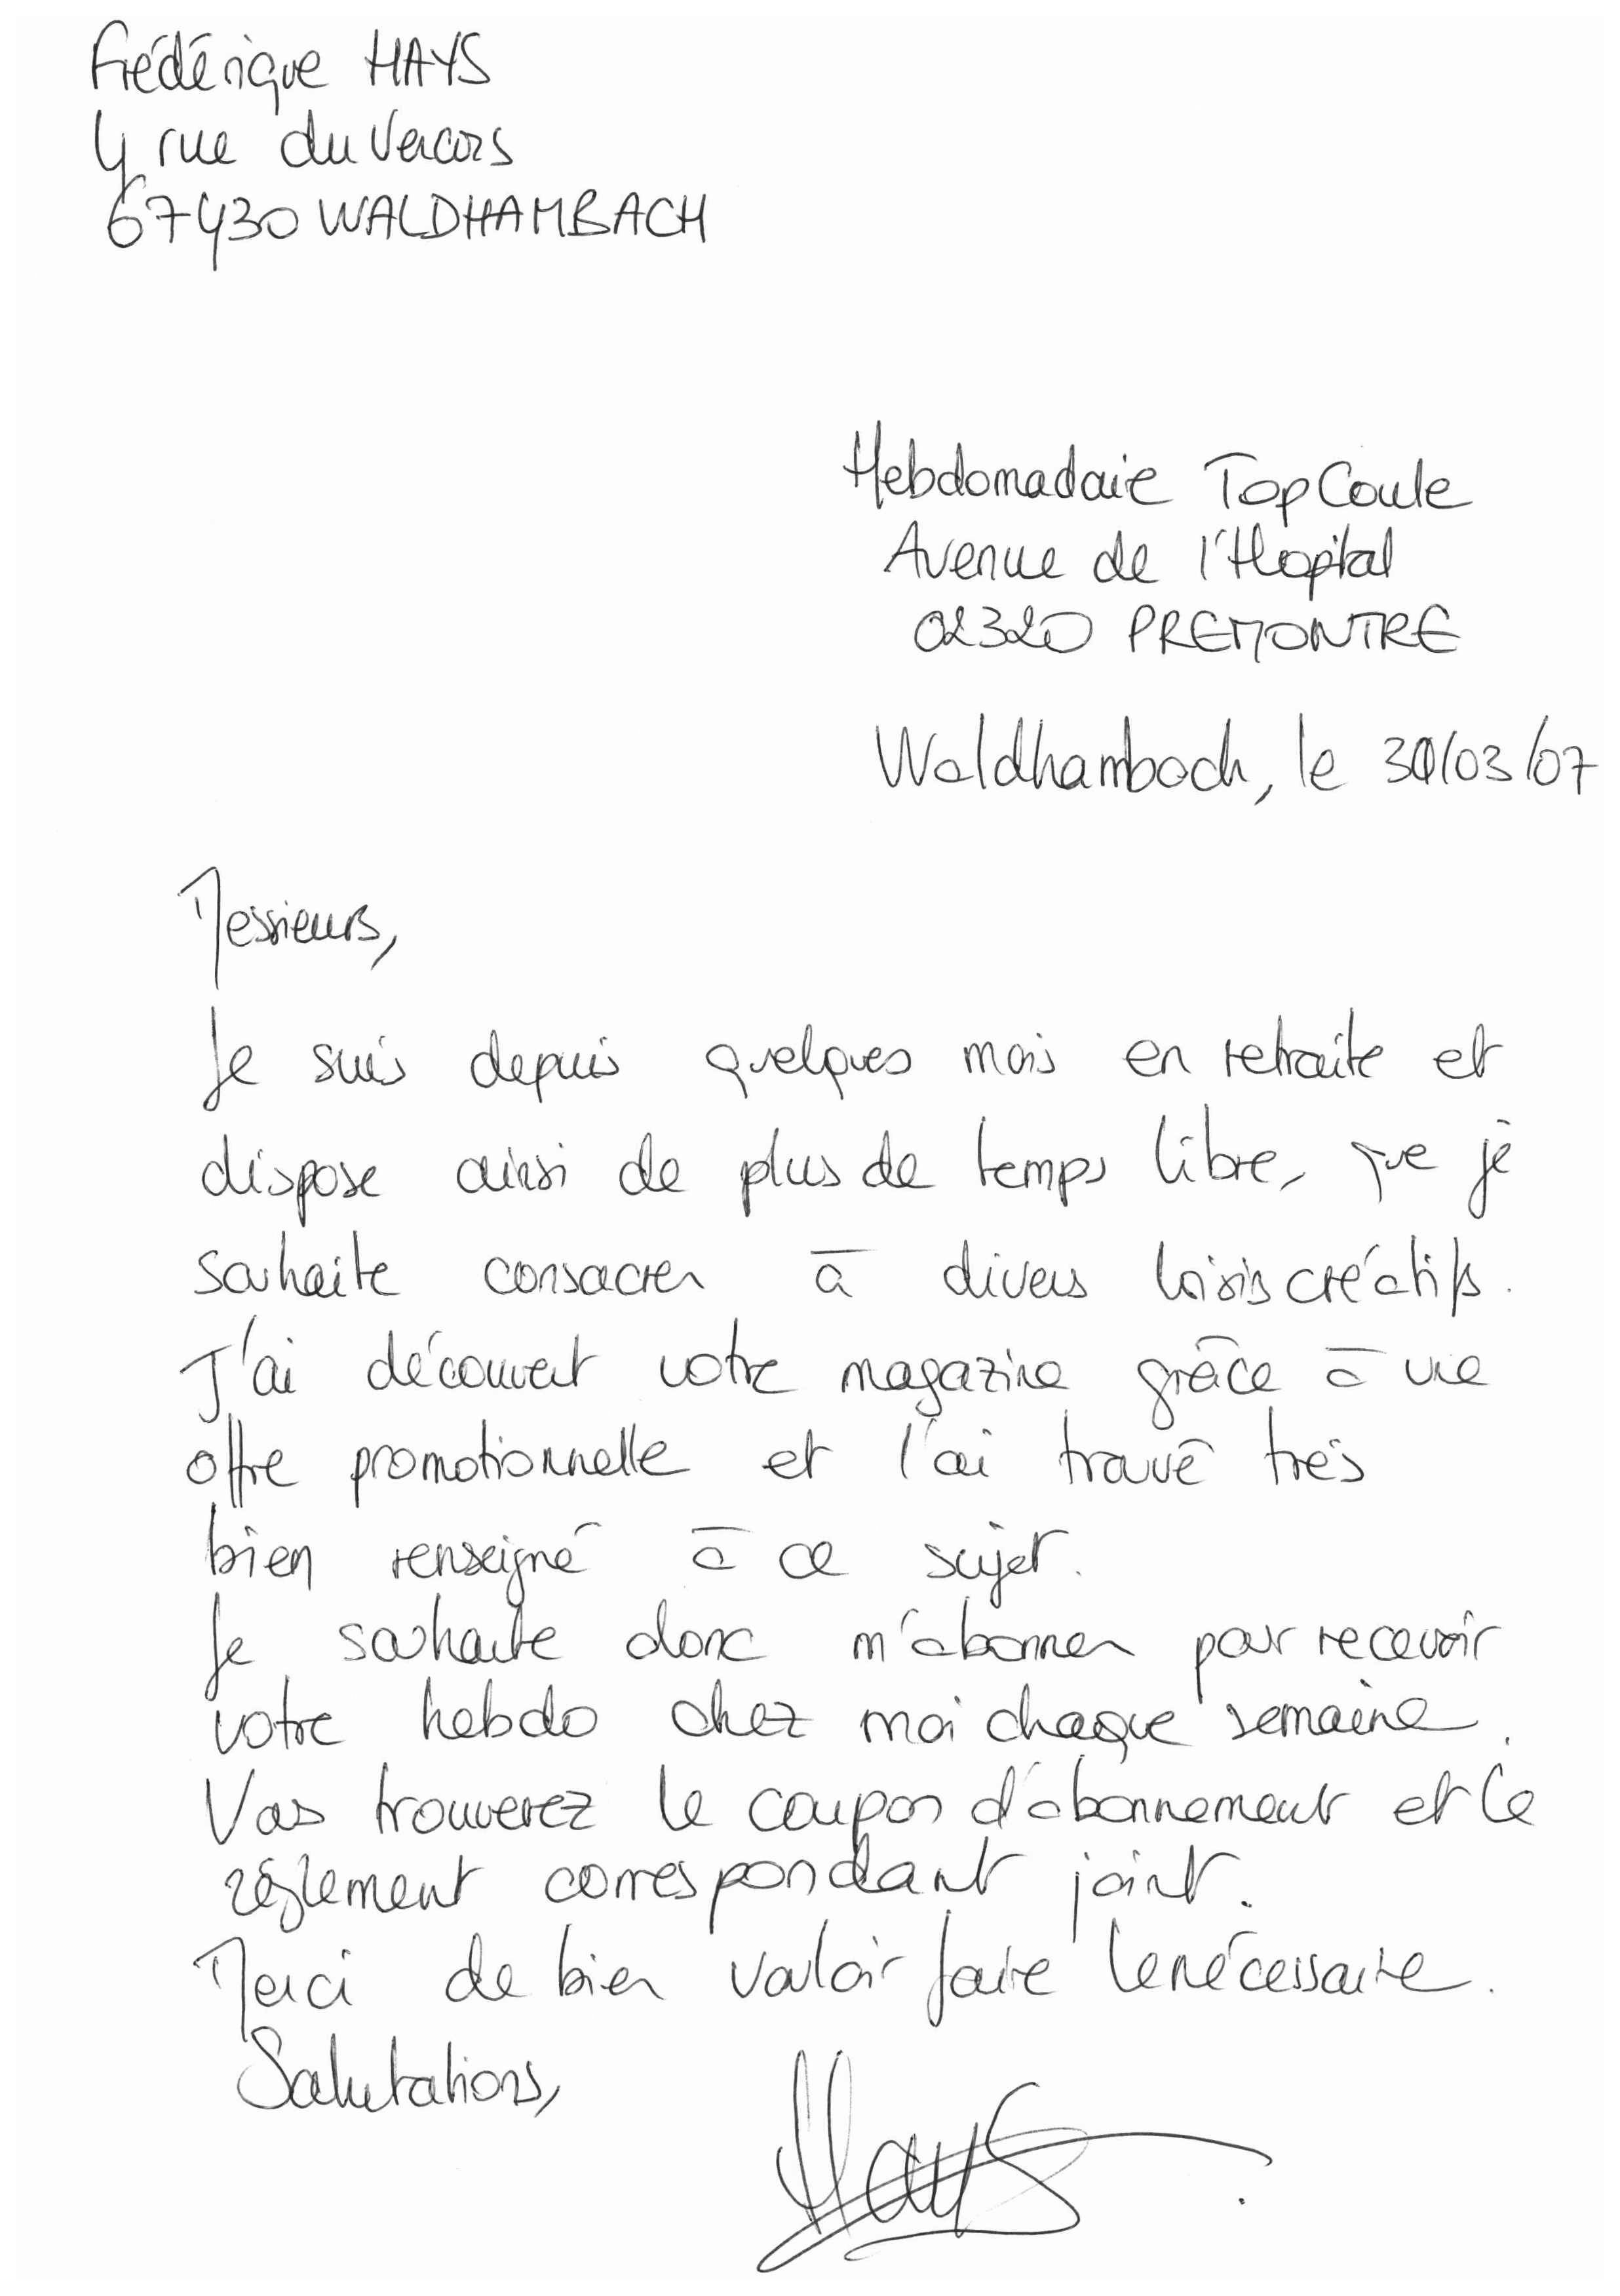 Frédérique HAYS
4 rue du Vercors
67430 WALDHAMBACH
Hebdomadaire TopCoule
Avenue de l'Hopital
02320 PREMONTRE
Waldhambach, le 30/03/07
Messieurs,
Je suis depuis quelques mois en retraite et
dispose ainsi de plus de temps libre, que je
souhaite consacrer à divers loisirs créatifs.
J'ai découvert votre magazine grâce à une
offre promotionnelle et l'ai trouvé très
bien renseigné à ce sujet.
Je souhaite donc m'abonner pour recevoir
votre hebdo chez moi chaque semaine.
Vous trouverez le coupon d'abonnement et le
réglement correspondant joint.
Merci de bien vouloir faire le nécessaire.
Salutations,
Hays